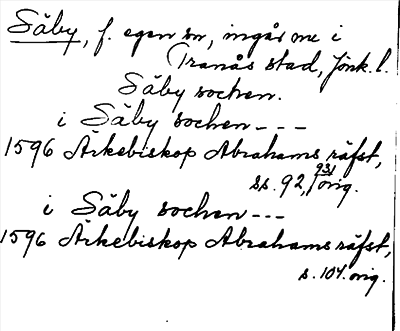 Säby, f. egen sn, ingår nu i
Tranås stad, Jönk. l.
Säby socken.
i Säby sochen ---
1596 Ärkebiskop Abrahams räfst,
ss. 92, 93, orig.
i Säby sochen ---
1596 Ärkebiskop Abrahams räfst,
s. 104. orig.